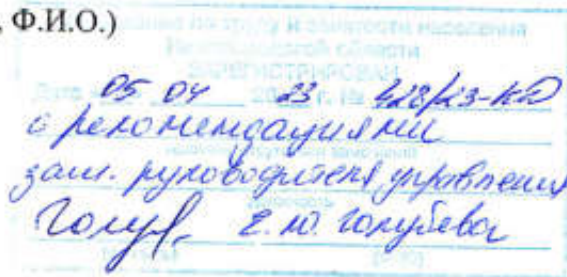 Ф.И.О.)
по труду и занятости населения
области
ЗАРЕГИСТРИРОВАН
Дата 05 04 2023 г. № 428/23-КД
с рекомендациями
зам. руководителя управления
Голуб. Е.Ю. Голубева